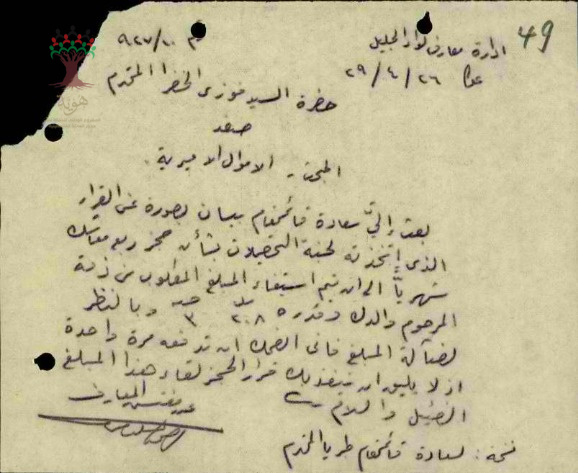 49
ادارة معارف لواء الجليل
عكا ٢٩/٤/٢٦
م ٩٢٧/٢٠
حضرة السيد فوزي الخضرا المحترم
صفد
المبحث - الاموال الاميرية
بعث إليّ سعادة قائمقام ببيان بصورة عن القرار
الذي اتخذته لجنة التحصيلات بشأن حجز ربع معاشك
شهرياً الى ان يتم استيفاء المبلغ المطلوب من ذمة
المرحوم والدك وقدره
وبالنظر
لضآلة المبلغ فاني انصحك ان تدفعه مرة واحدة
اذ لا يليق ان ينفذ بك قرار الحجز لقاء هذا المبلغ
الضئيل والسلام
مفتش المعارف
نسخة: لسعادة قائمقام طبريا المحترم
هوية